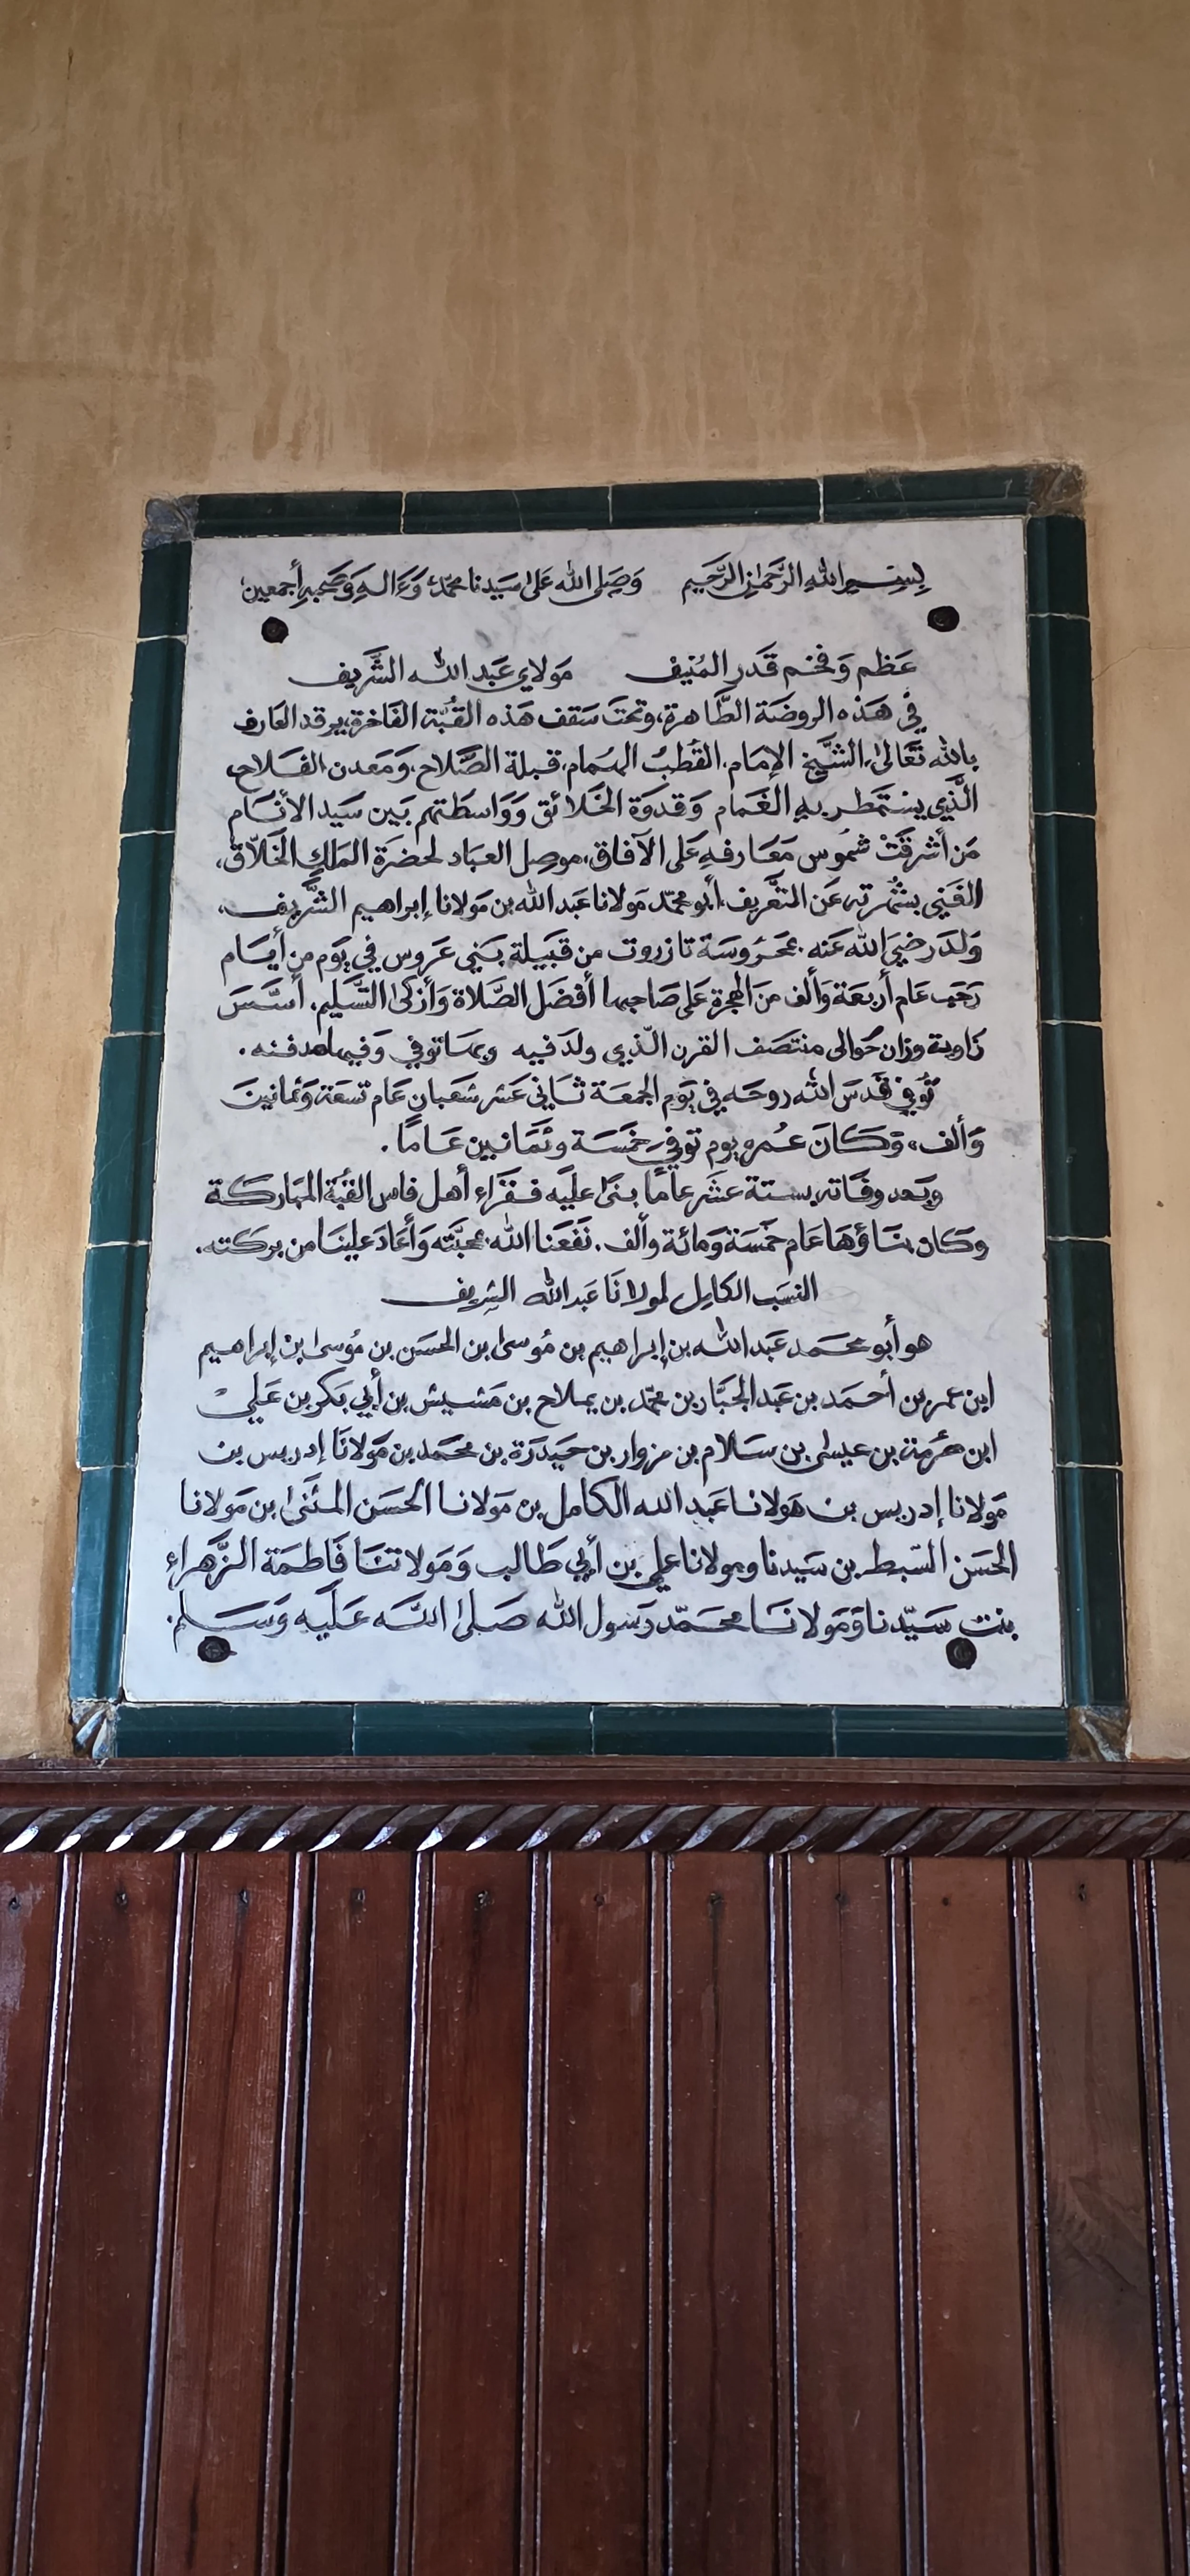 بِسْمِ اللهِ الرَّحْمَٰنِ الرَّحَيمِ وَصَلى الله عَلىٰ سَيَدنا محمّد وَءَالهِ وَصَحبهِ أجمعين
عَظم وَفخم قَدر المُنِيفْ مَولاي عَبد الله الشَّريف
في هَذه الروضَة الطَّاهرة، وتحتَ سَقف هَذه القُبَّة الفَاخرة، يرقد العَارف
بالله تعَالىٰ، الشَّيخ الإمَام، القُطبُ الهُمام، قبلة الصَّلاح، وَمَعدن الفَلاح،
الَّذي يستَمطر بهِ الغَمام وَقدوَة الخَلائق وَوَاسطَتهم بَين سَيَد الأنَام
مَن أشرقَتْ شمُوس مَعَارفهِ عَلى الآفاق، موصِل العبَاد لحضرَة المَلكِ الخَلَّاق،
الغَنِي بشُهرتهِ عَن التعَّريف، أبو محمّد مَولانا عَبد الله بن مَولانا إبراهيم الشَّريف،
وَلدَ رَضيَ الله عَنه بمحرُوسَة تازروت من قبَيلة بَني عَروس في يَوم من أيَام
رَجَب عَام أربعَة وَألف منَ الهجرة عَلى صَاحبها أفضَل الصَّلاة وَأزكىٰ التسَّليم. أسَّسَ
زَاوية وزان حَوالى منتصَف القرن الّذي ولدَ فيه وبهَا توفي وَفيها مدفنه.
تُوفي قدَسَ الله روحَه في يَوم الجمعَة ثَاني عَشر شعَبان عَام تسعَة وَثمانينَ
وَألف، وَكَانَ عُمره يوم توفيَ خمَسَة وثمَانين عَامًا.
وبَعد وفَاته بستة عشَر عامًا بنىٰ عليَه فقرَاء أهل فاس القبَّة المبَاركَة
وَكان بنَاؤهَا عَام خمَسَة وَمائة وألف. نَفَعَنا الله بمحبَّته وَأعَادَ علينَا من بركته.
النسَب الكامِل لمولانَا عَبد الله الشريف
هو أبو محَمد عَبد الله بن إبراهيم بن مُوسىٰ بن الحسَن بن مُوسىٰ بن إبراهيم
ابن عمر بن أحمَد بن عَبد الجبَّار بن محمّد بن يملاح بن مَشيش بن أبي بَكر بن عَلي
ابن حُرمة بن عيسىٰ بن سَالام بن مزوار بن حَيدَرَة بن محَمد بن مَولانَا إدريس بن
مَولانا إدريس بن مَولانا عَبد الله الكامل بن مَولانا الحسَن المثَنىٰ بن مَولانا
الحسَن السّبط بن سَيدنا ومولانا علي بن أبي طَالب وَمَولاتنَا فَاطمَة الزَّهراء
بنت سَيّدنا وَمَولانَا محَمّد رَسول الله صَلىٰ اللَّه عَلَيه وَسَلم.